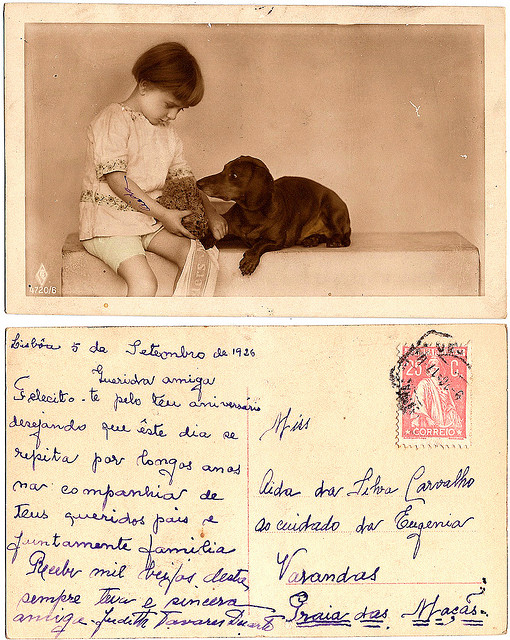 4720/6
Lisbôa 5 de Setembro de 1926
Querida amiga
Felecito-te pelo teu aniversário
desejando que êste dia se
repita por longos anos
na companhia de
teus queridos pais e
juntamente familia
Recebe mil beijos desta
sempre tua e sincera
amiga - Judith Tavares Duarte
25 C.
CORREIO
Mis
Aida da Silva Carvalho
ao cuidado da Eugenia
Varandas
Praia das Maçãs